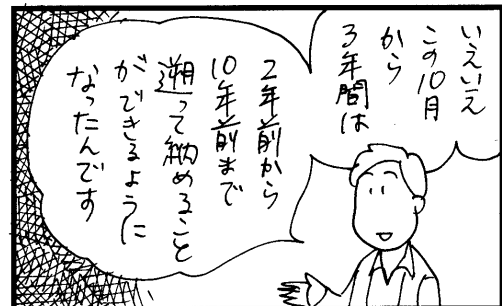 いえいえ
この10月
から
3年間は
2年前から
10年前まで
遡って納めること
ができるように
なったんです